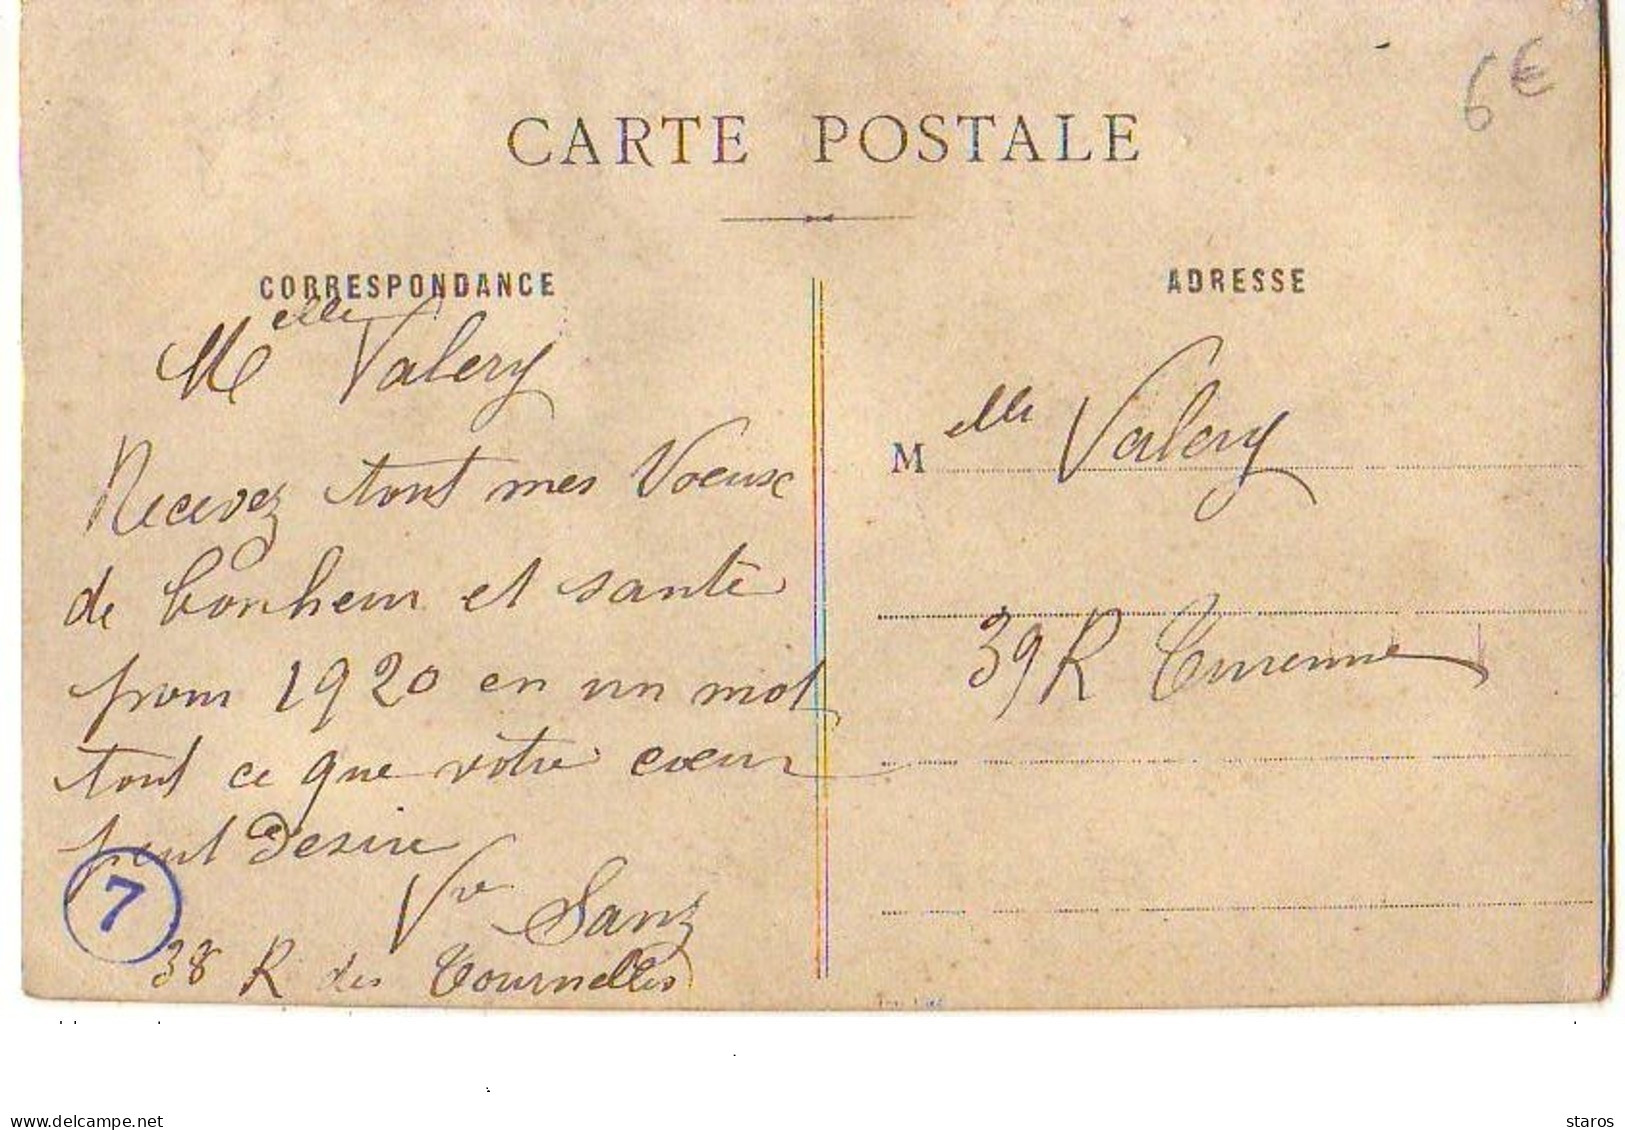 6€
CARTE POSTALE
CORRESPONDANCE
Melle Valery
Recevez tout mes Voeux
de bonheur et santé
pour 1920 en un mot
tout ce que votre coeur
peut Desire
Vve Sanz
7
38 R des Tournelles
ADRESSE
Melle Valery
39 R Turenne
www.delcampe.net
staros